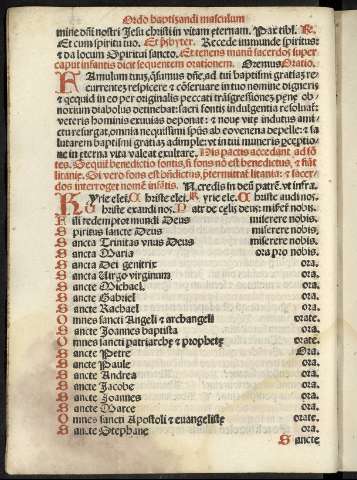 Ordo baptizandi masculum
mine dñi nostri Jesu christi in vitam eternam. Pax tibi. R.
Et cum spiritu tuo. Et p̃sbyter. Recede immunde spiritus:
⁊ da locum Spiritui sancto. Et tenens manũ sacerdos super
caput infantis dicit sequentem orationem. Oremus Oratio.
FAmulum tuuȝ, q̃sumus dñe, ad tui baptismi gratiaȝ re
currenteȝ respicere ⁊ cõseruare in tuo nomine digneris
⁊ qequid in eo per originalis peccati trãsgressioneȝ pene ob
noxium diabolus detinebat: sacri fontis indulgentia resoluat:
veteris hominis exuuias deponat: ⁊ noue vite indutus ami
ctu resurgat, omnia nequissimi spũs ab eo venena depelle: ⁊ sa
lutarem baptismi gratiaȝ adimple: vt in tui muneris pceptio
ne in eterna vita valeat exultare. His pactis accedant ad fõ
tes. Sequit benedictio fontis, si fons nõ est benedictus, ⁊ fiãt
litanie. Si vero fons est bñdictus, p̃termittat litania: ⁊ sacer
dos interroget nomẽ infãtis. N. credis in deũ patrẽ. vt infra.
KYrie elei. Christe elei. Kyrie elei. Christe audi nos.
Christe exaudi nos. Pater de celis deus: miserẽ nobis.
Fili redemptor mundi Deus miserere nobis.
Spiritus sancte Deus miserere nobis.
Sancta Trinitas vnus Deus miserere nobis.
Sancta Maria ora pro nobis.
Sancta Dei genitrix ora.
Sancta Virgo virginum ora.
Sancte Michael. ora.
Sancte Gabriel ora.
Sancte Rachael ora.
Omnes sancti Angeli ⁊ archangeli orate.
Sancte Joannes baptista ora.
Omnes sancti patriarche ⁊ prophete orate.
Sancte Petre Ora.
Sancte Paule ora.
Sancte Andrea ora.
Sancte Jacobe ora.
Sancte Joannes ora.
Sancte Marce ora.
Omnes sancti Apostoli ⁊ euangeliste orate.
Sancte Stephane ora.
Sancte